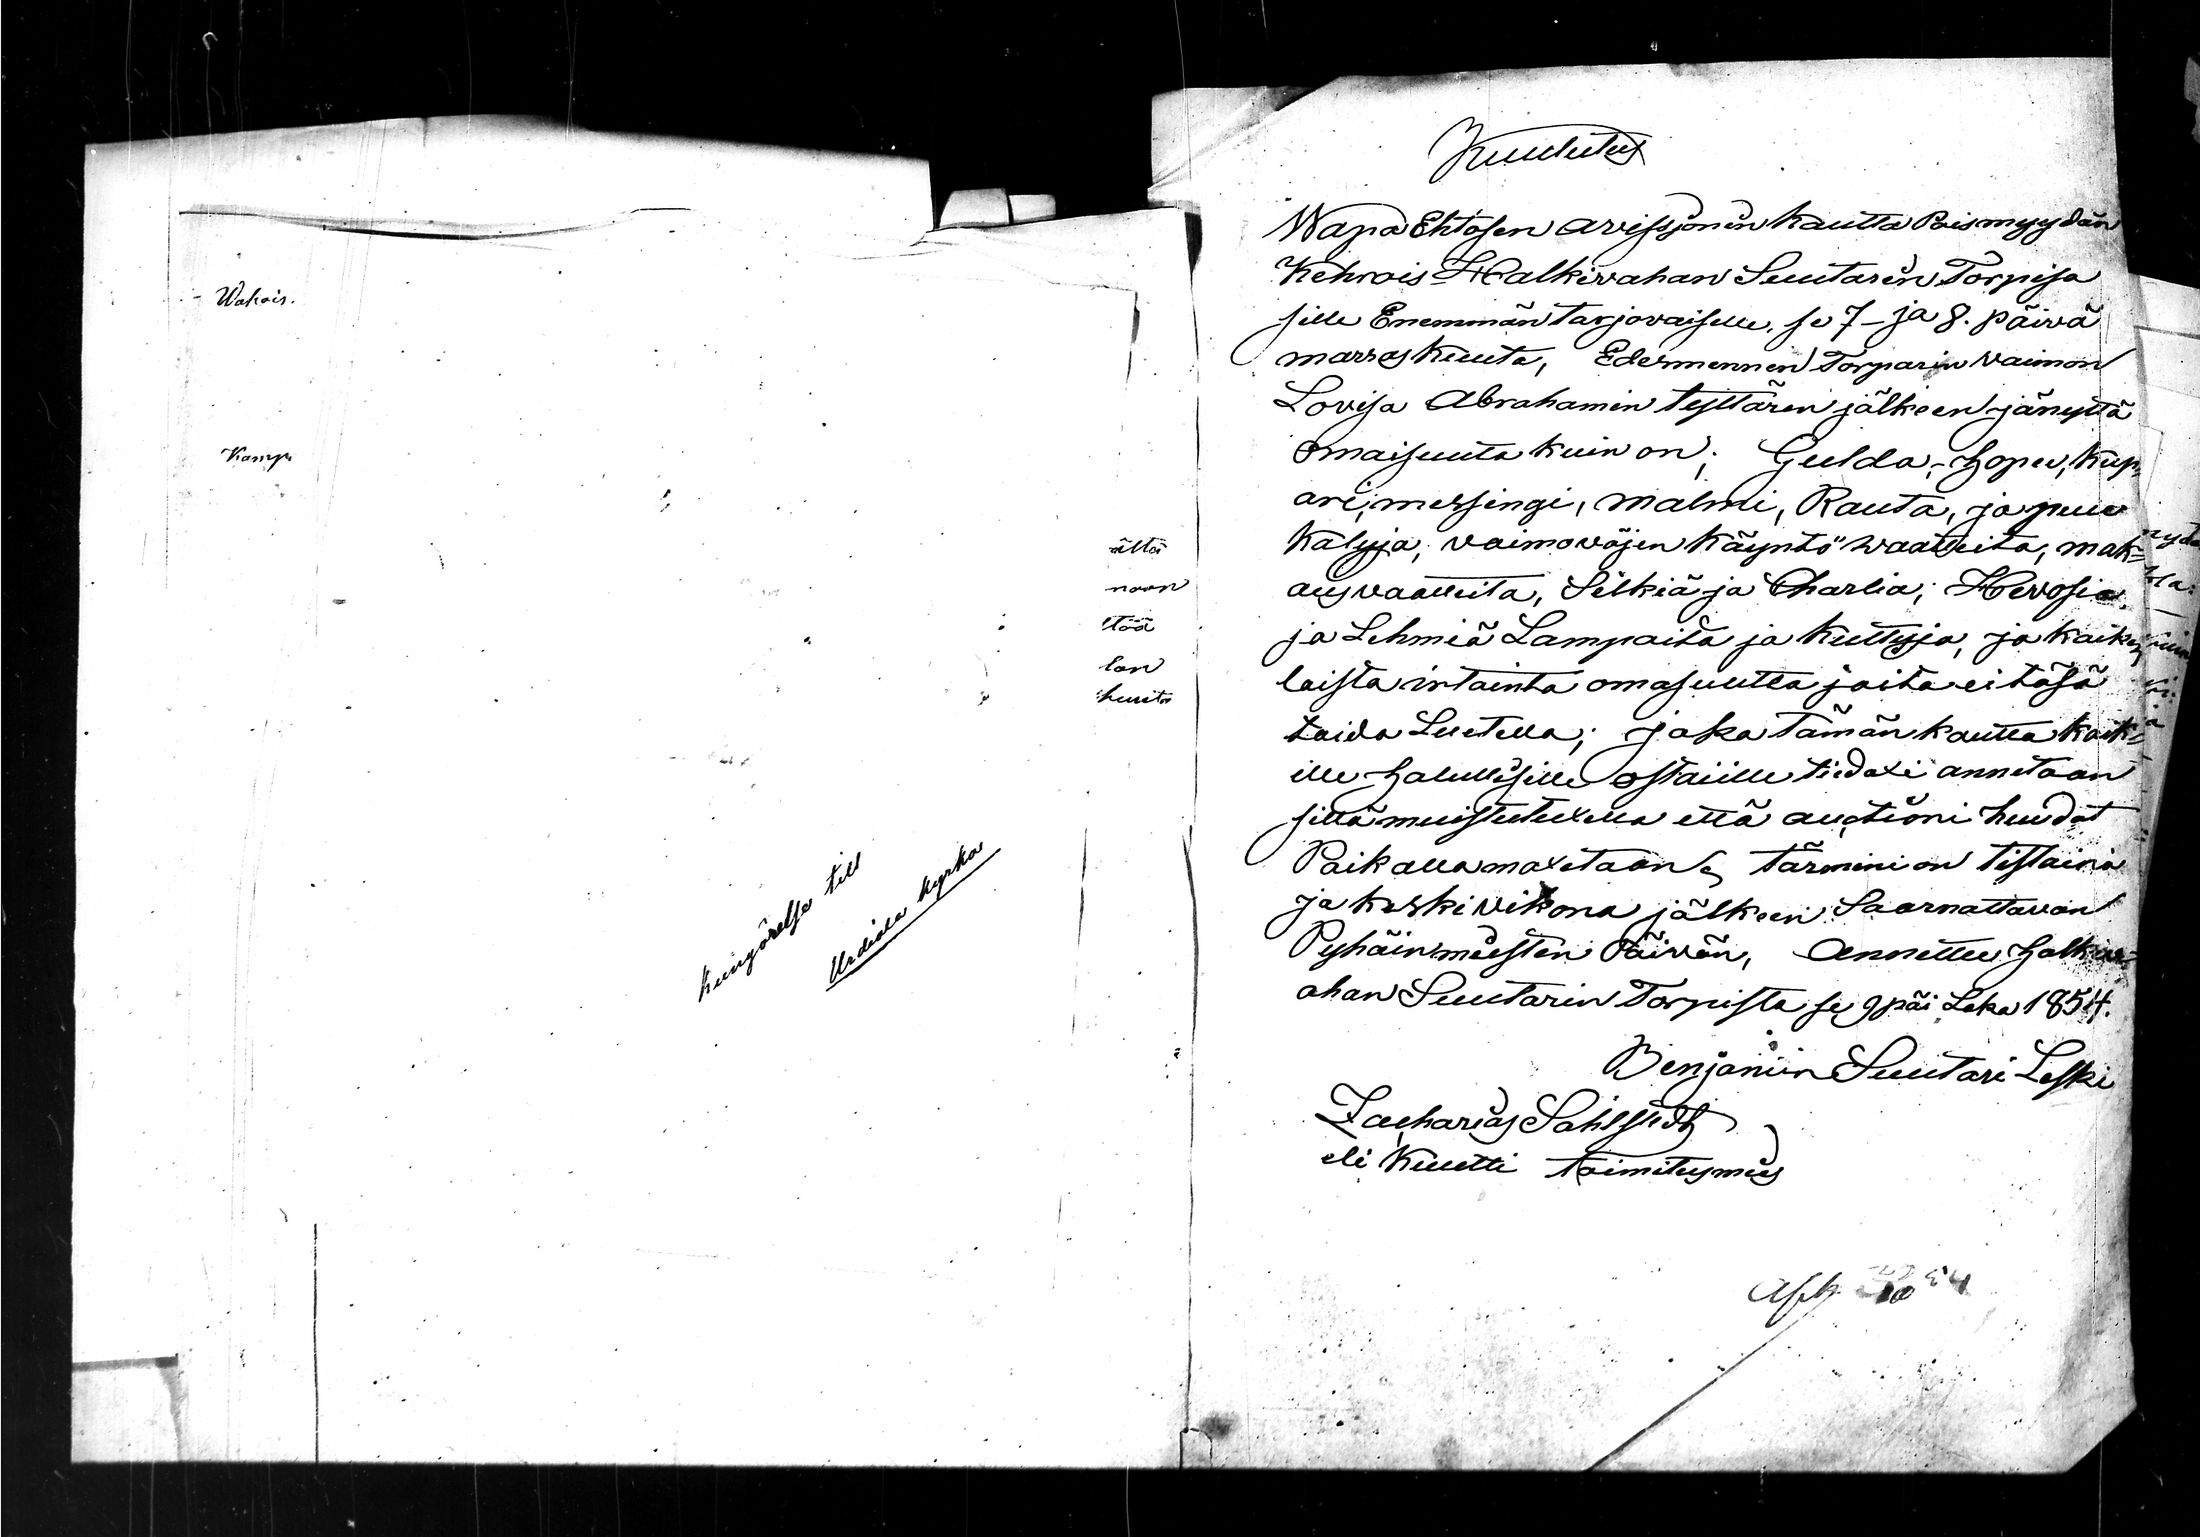 Wahais.
Kamp
ältä
noon
ttöä
lan
huuto
kungörelse till
Urdiala kyrka
Kuulutus
Wapa Ehtosen avissjonin kautta Pois myydän
Kehrois Halkivahan Suutarin Torpisa
sille Enemmän tarjovaiselle, se 7 - ja 8. päivä
marras kuuta, Edesmennen Torparin vaimon
Lovisa Abrahamin tyttären jälkeen jänyttä
omaisuuta kuin on; Gulda,- hopu, kup,
ari, messingi, malmi, Rauta, ja puu
kaluja, vaimoväjen käyntö waatteita, mak=
aus vaatteita, Silkiä ja Charlia; Hevosia
ja Lehmiä Lampaita ja kuttuja, ja kaiken
laista irtainta omasuutta joita ei täsä
taida Luetella; joka tämän kautta kaik=
ille halullisille ostaille tiedaxi annetaan
sillä muistutuxella että auctioni huudot
Paikalla maxetaan tärmini on tistaina
ja keskivikona jälkeen Saarnattavan
Pyhäinmiesten Päivän, Annettu halkiv=
ahan Suutarin Torpista se 9 päi Loka 1854.
Benjamin Suutari Leski
Zacharias Sahlstedt
eli Kuutti toimitusmies